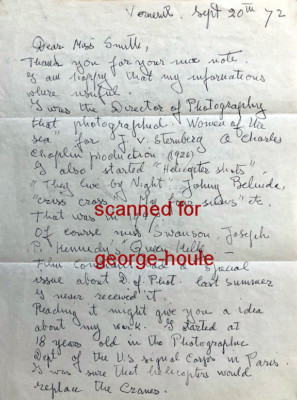 Verneuil, Sept 20th 72
Dear Miss Smith,
Thank you for your nice note
I am happy that my informations
where usefull.
I was the Director of Photography
that photographed "Women of the
sea" for J. V. Sternberg a Charles
Chaplin production (1926)
I also started "Helicopter shots"
"They live by Night" Johny Belinda,
"criss cross",
scanned for
That was in 1947
george-houle
Of course miss Swanson Joseph
P. Kennedy's "Queen Kelly" —
Film had a special
issue about D. of Phot. last summer
I never received it.
Reading it might give you a idea
about my work. I started at
18 years old in the Photographic
Dept of the U.S signal Corps in Paris.
I was sure that helicopters would
replace the Cranes.